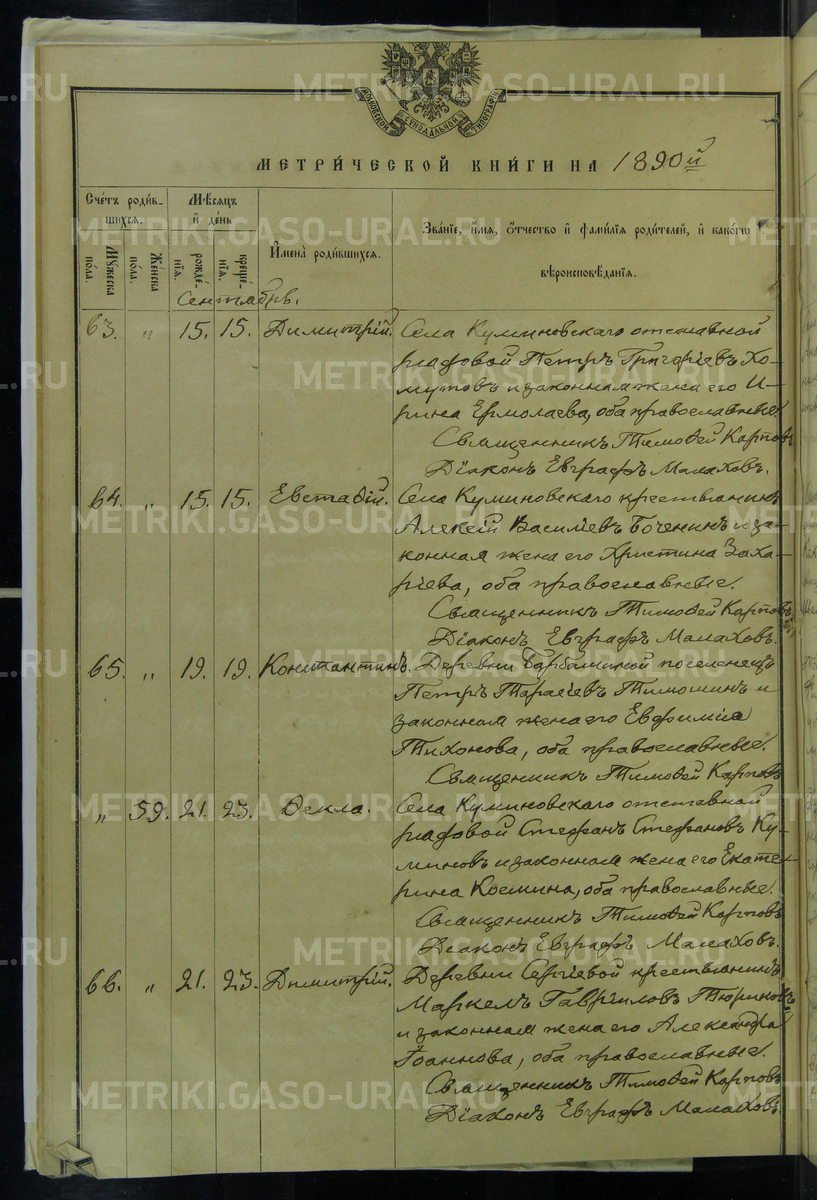 МОСКОВСКОЙ СУНОДАЛЬНОЙ ТИПОГРАФІИ
МЕТРИ́ЧЕСКОЙ КНИ́ГИ НА 1890й
Счетъ роди́в-
шихся.
Мѣсяцъ
и҆ де́нь
Мꙋжеска
по́ла.
Же́нска
по́ла.
рожде́-
нїѧ.
креще́-
нїѧ.
И҆мена̀ роди́вшихся.
Зва́нїе, и҆́мѧ, ѻ҆́тчество и҆ фамѵ́лїѧ роди́телей, и҆ како́гѡ
вѣроисповѣ́данїѧ.
Сентябрь.
63. „ 15. 15. Димитрій. Села Куминовскаго отставной
рядовой Петръ Григоріевъ Хо-
мутовъ и законная жена его И-
рина Ермолаева, оба православные.
Священникъ Тимоѳей Карповъ
Діаконъ Евграфъ Малаховъ.
64. „ 15. 15. Евстаѳій. Села Куминовскаго крестьянинъ
Алексій Васильевъ Боченинъ и за-
конная жена его Христина Заха-
ріева, оба православные.
Священникъ Тимоѳей Карповъ.
Діаконъ Евграфъ Малаховъ.
65. „ 19. 19. Константинъ. Деревни поселенецъ
Петръ Тарасіевъ Тимошинъ и
законная жена его Евфимія
Тихонова, оба православные.
Священникъ Тимоѳей Карповъ
„ 59. 21. 23. Ѳекла. Села Куминовскаго отставной
рядовой Стефанъ Стефановъ Ку-
миновъ и законная жена его Екате-
рина Космина, оба православные.
Священникъ Тимоѳей Карповъ
Діаконъ Евграфъ Малаховъ.
66. „ 21. 23. Димитрій. Деревни Сергіевой крестьянинъ
Маркелъ Гавріиловъ Тюриковъ
и законная жена его Александра
Іоаннова, оба православные.
Священникъ Тимоѳей Карповъ
Діаконъ Евграфъ Малаховъ
METRIKI.GASO-URAL.RU